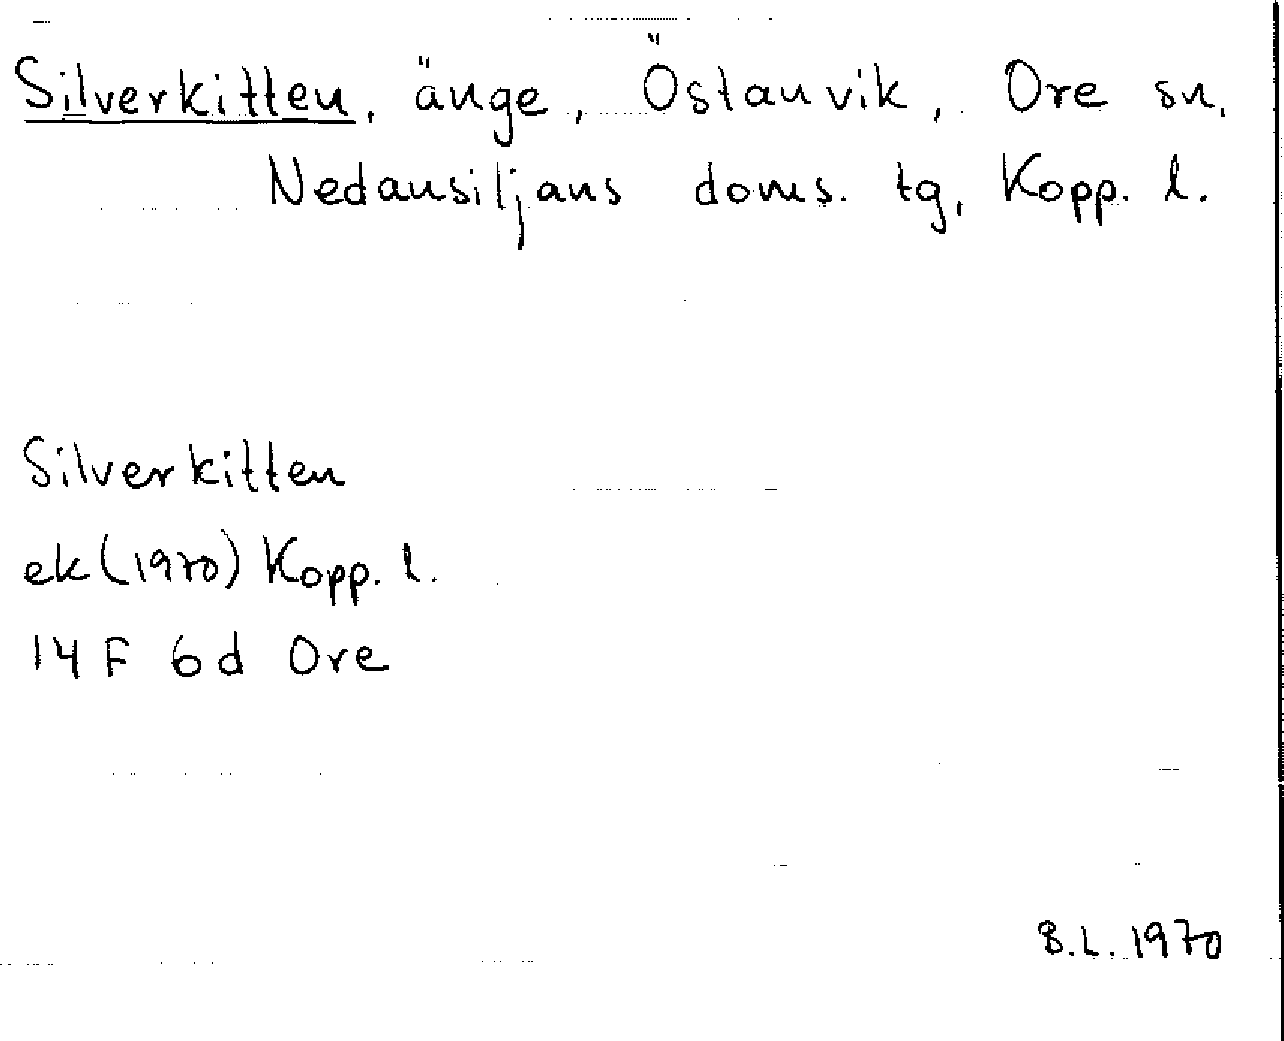 Silverkitten, änge, Östanvik, Ore sn,
Nedansiljans doms. tg, Kopp. l.
Silverkitten
ek (1970) Kopp. l.
14 F 6 d Ore
B.L. 1970